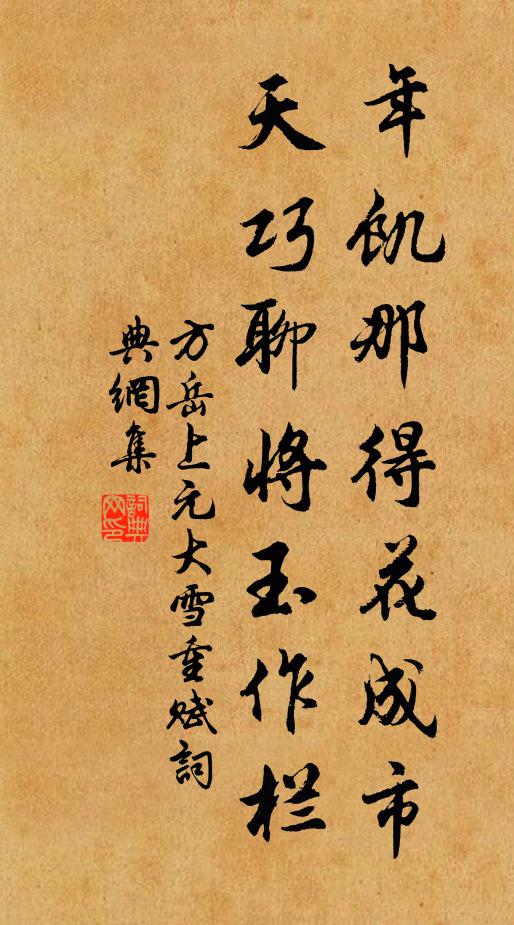 年飢那得花成市
天巧聊將玉作栏
方岳上元大雪重赋詞
典網集
詞典
网印